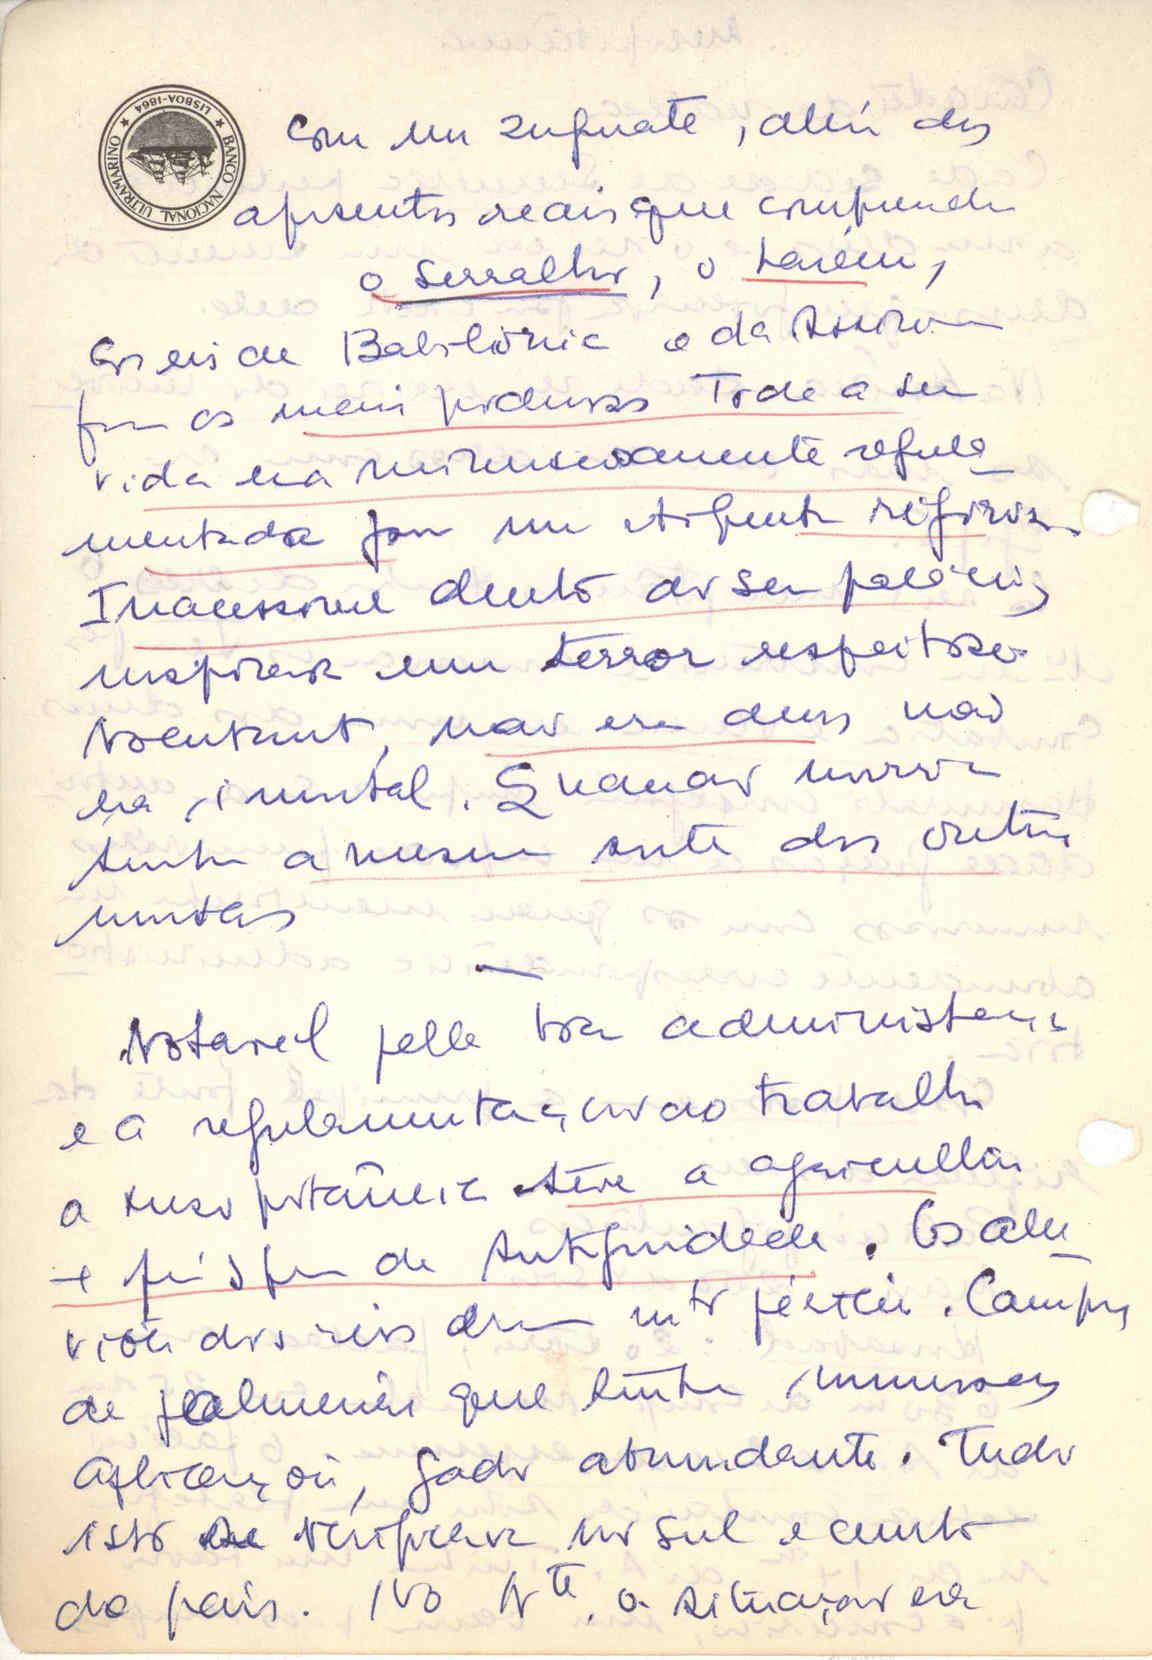 BANCO NACIONAL ULTRAMARINO
LISBOA-1864
Com um zigurate, além dos
aposentos reais que compreendia
o serralho, o harém,
Os reis de Babilónia e da Assiria
os mais poderosos Toda a sua
vida era minuciosamente regula
mentada por um etiqueta rigorosa.
Inacessivel dentro do seu palácio,
inspirava um terror respeitoso.
No entanto, não era deus não
era imortal. Quando morria
tinha a mesma sorte dos outros
mortais
—
Notavel pella boa administração
e a regulamentação do trabalho
a mesopotâmia teve a agricultura
+ próspera da Antiguidade. Os
dos reis eram mto férteis. Campos
de palmeiras que tinha imensas
aplicações, gado abundante. Tudo
isto se verificava no sul e centro
do pais. No Nte. a situação era